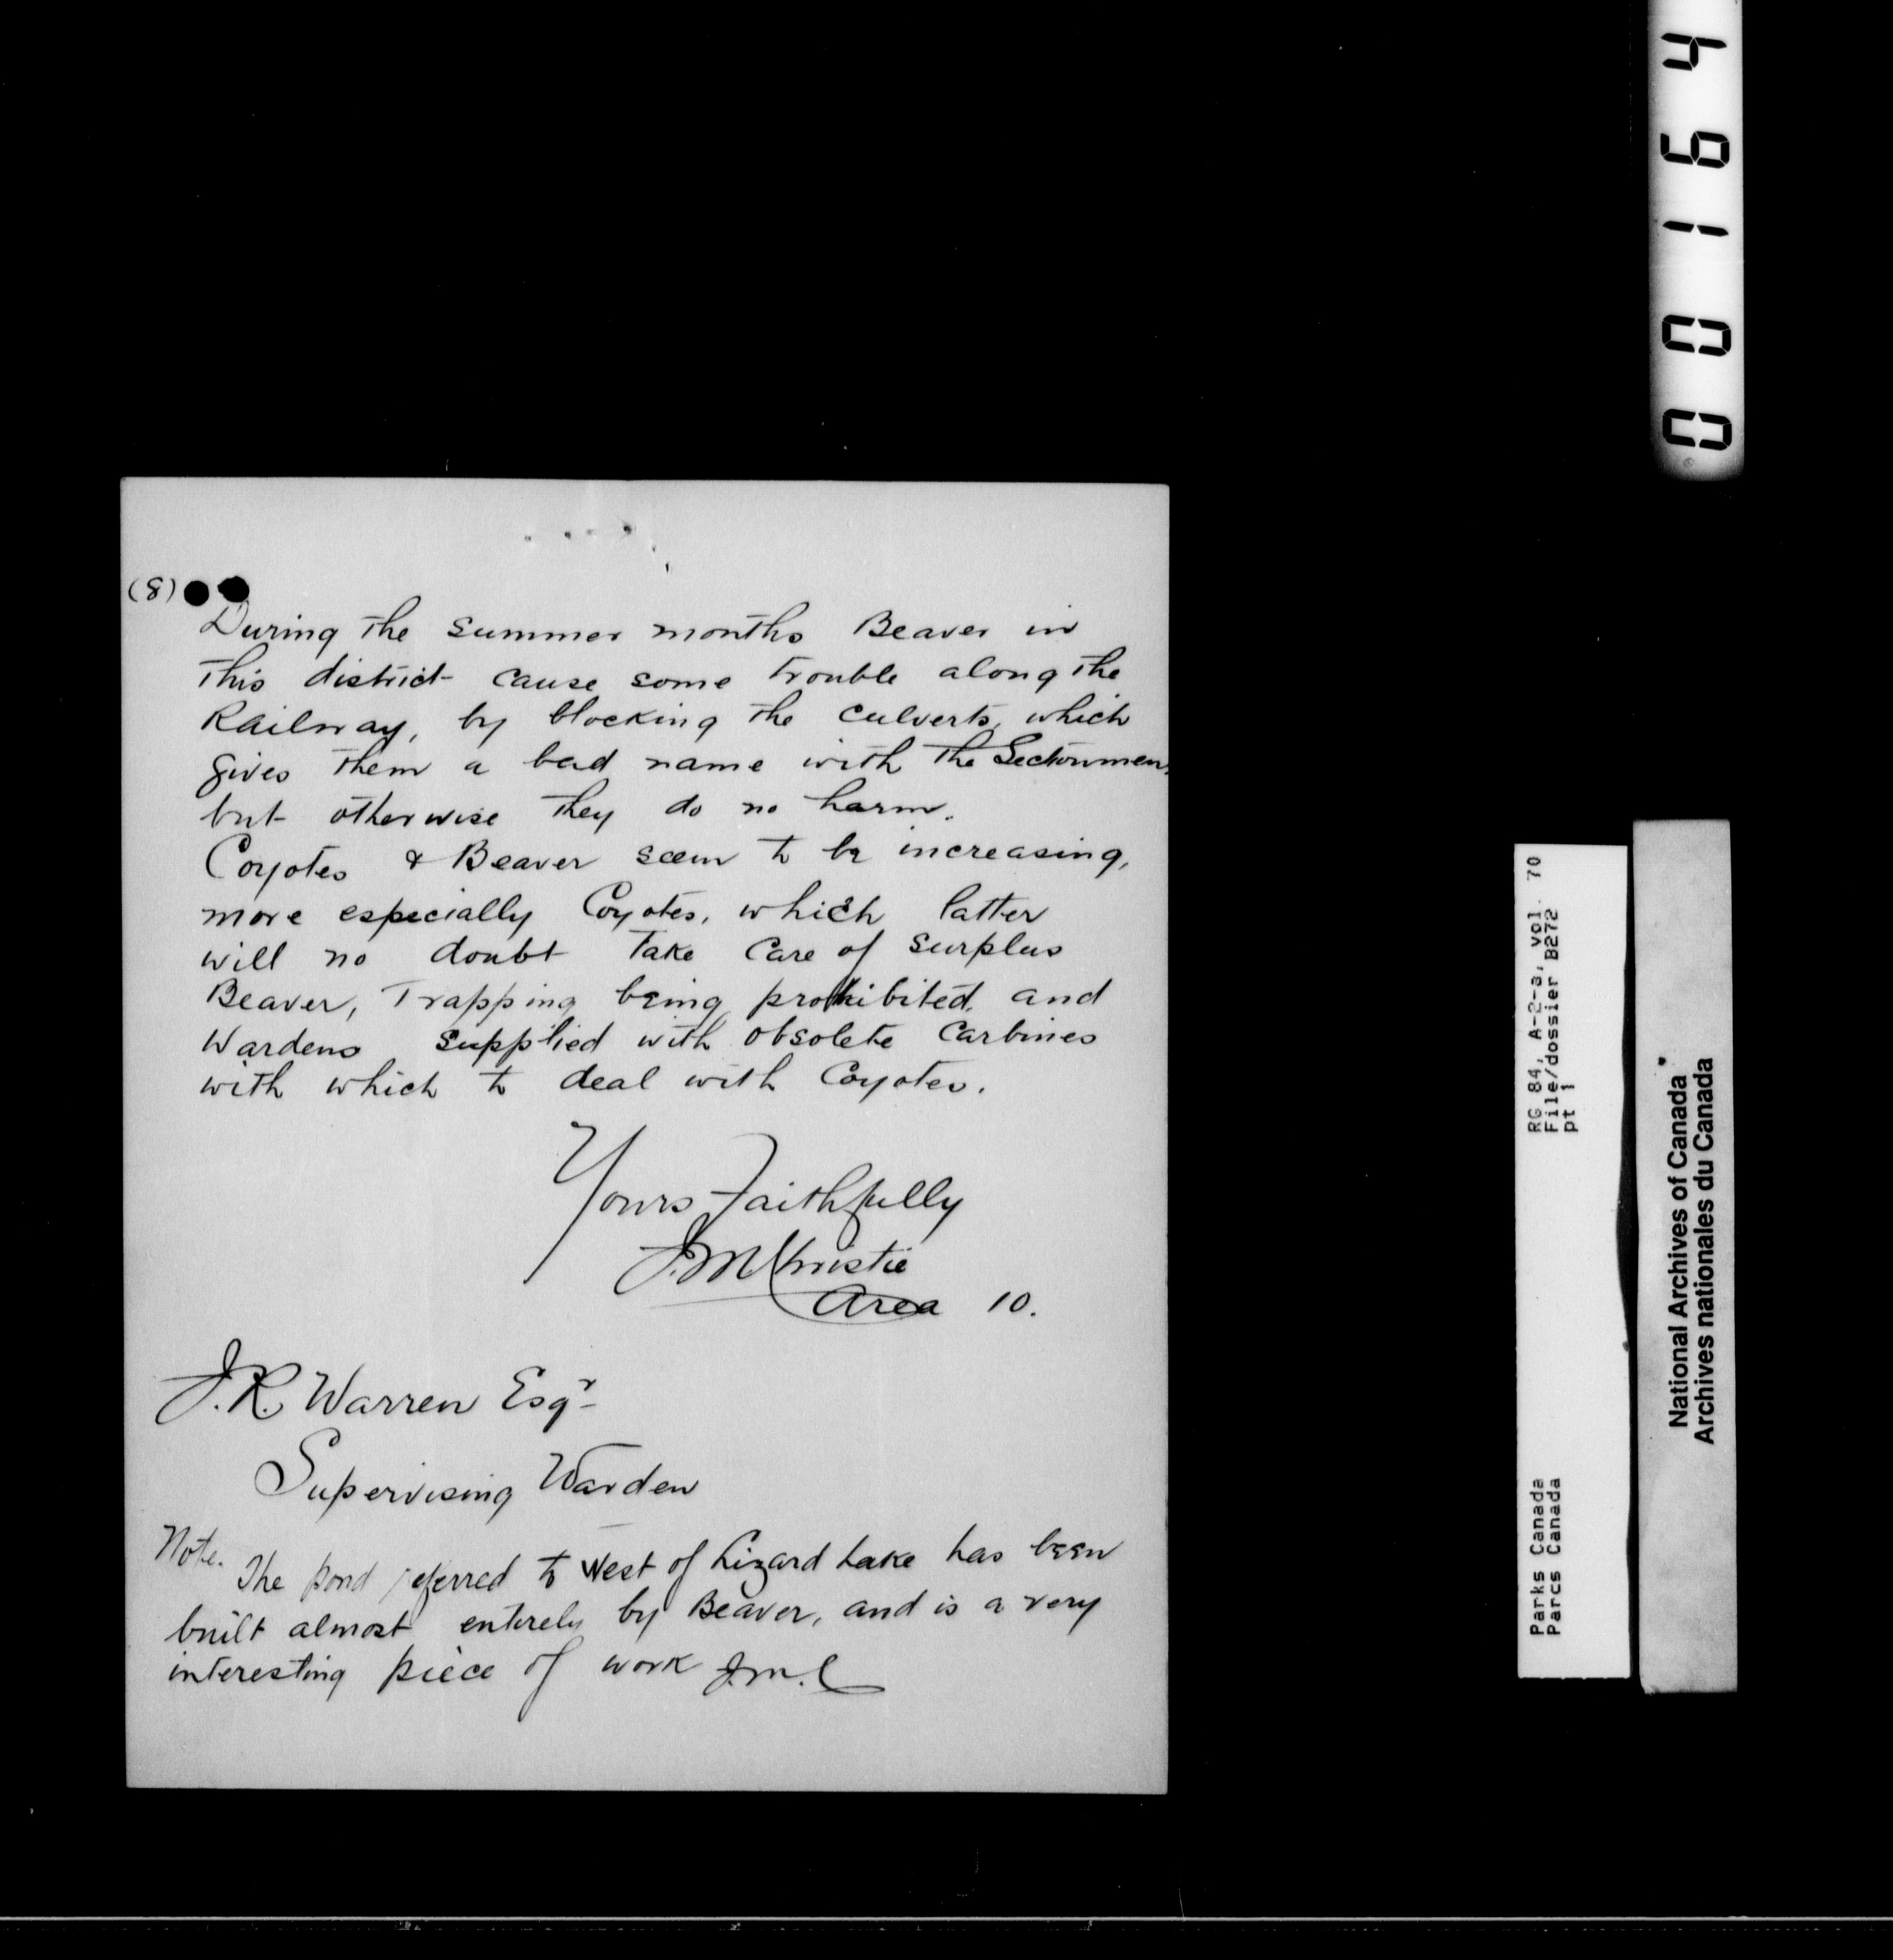 (8)
During the summer months Beaver in
this district cause some trouble along the
Railway, by blocking the culverts, which
gives them a bad name with the Sectionmen,
but otherwise they do no harm.
Coyotes & Beaver seem to be increasing,
more especially Coyotes, which latter
will no doubt take care of surplus
Beaver, Trapping being prohibited, and
Wardens supplied with obsolete Carbines
with which to deal with Coyotes.
Yours Faithfully
J.M Christie
Area 10.
J.R. Warren Esqr
Supervising Warden
Note. The pond referred to West of Lizard Lake has been
built almost entirely by Beaver, and is a very
interesting piece of work J.M.C
00164
RG 84, A-2-a, vol. 70
File/dossier B272
pt 1
Parks Canada
Parcs Canada
National Archives of Canada
Archives nationales du Canada